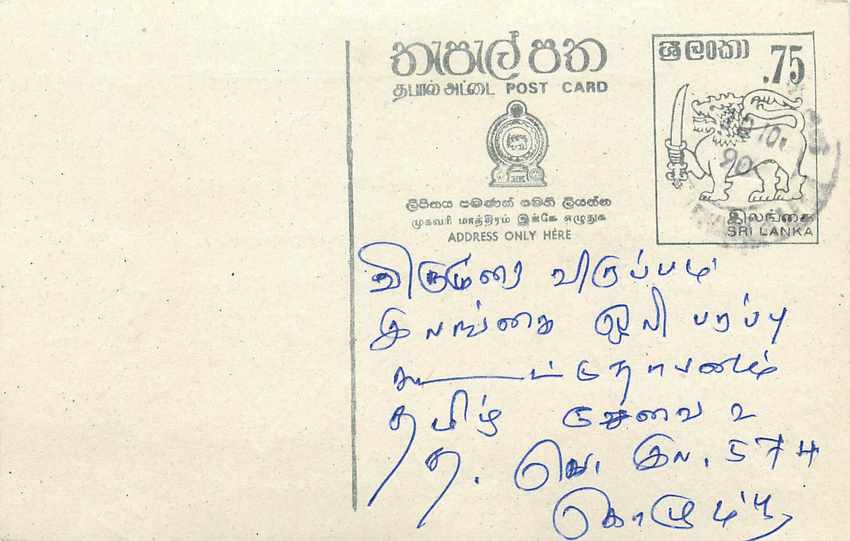 තැපැල් පත
தபால் அட்டை POST CARD
ලිපිනය පමණක් පමණි ලියන්න
முகவரி மாத்திரம் இங்கே எழுதுக
ADDRESS ONLY HERE
ශ්‍රී ලංකා
.75
இலங்கை
SRI LANKA
90
விருப்பம்
இலங்கை ஒலி பரப்பு
கூட்டுதாபனம்
தமிழ் சேவை 2
த. பெ. இல. 574
கொழும்பு